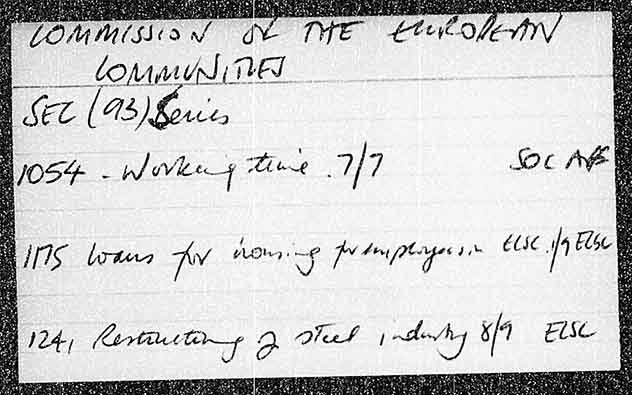 COMMISSION OF THE EUROPEAN
COMMUNITIES
SEC (93) Series
1054 - Working time . 7/7 SOC AFFS
1175 loans for housing for employees in ECSC . 1/9 ECSC
1241 Restructuring of steel industry 8/9 ECSC